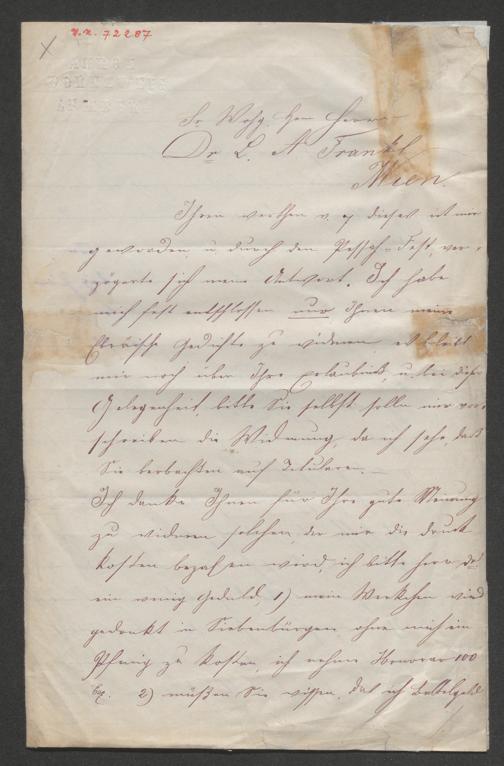 V.N. 72207
Sr Wohg. Herr
Dr L. A. Frankl
Wien.
Ihren werthen v. 7 dieses ist mir
geworden u. durch den Pessach-Fest, ver-
zögerte sich meine Antwort. Ich habe
mich fest entschlossen nur Ihnen meine
Ebräische Gedichte zu widmen es bleibt
mir noch über Ihre Erlaubniß, u. bei dieser
Gelegenheit, bitte Sie selbst sollen mir vor-
schreiben die Widmung, da ich sehe, daß
Sie beobachten auf Titularen.
Ich danke Ihnen für Ihre gute Meinung
zu widmen solchen, der mir die Druck
kosten bezahlen wird, ich bitte Herr Dr
ein wenig Geduld, 1) mein Werkchen wird
gedruckt in Siebenbürgen ohne mich ein
Pfenig zu kosten, ich nehme Honorar 100
Ex. 2) müßen Sie wissen, daß ich